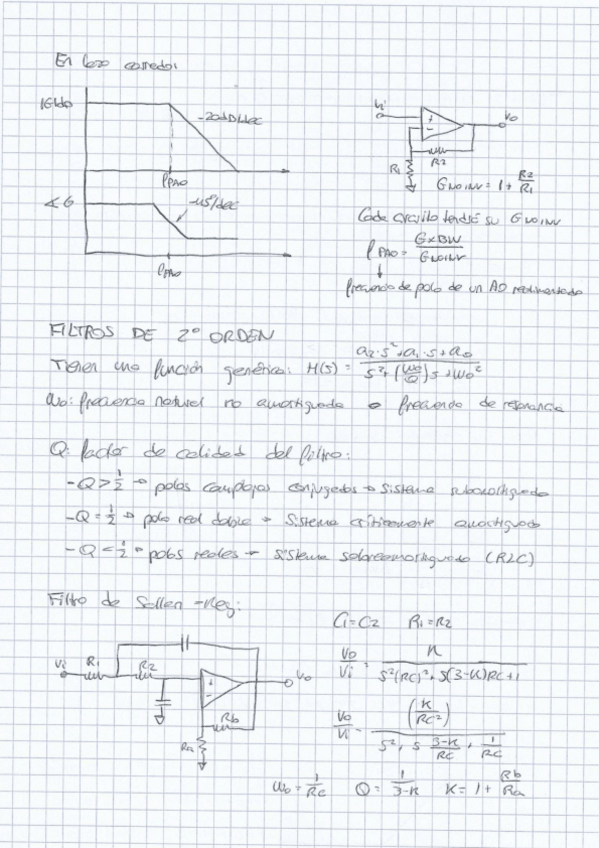 En lazo cerrado:
|G|db
-20dB/dec
fPAO
∠G
-45°/dec
fPAO
Vi
Vo
+
-
R2
R1
GNOINV = 1 + R2/R1
Cada circuito tendrá su GNOINV
fPAO = GxBW/GNOINV
frecuencia de polo de un AO realimentado
FILTROS DE 2º ORDEN
Tienen una función genérica: H(s) = (a2·s²+a1·s+a0)/(s²+(wo/Q)s+wo²)
wo: frecuencia natural no amortiguada o frecuencia de resonancia
Q: factor de calidad del filtro:
-Q>1/2 → polos complejos conjugados → sistema subamortiguado
-Q=1/2 → polo real doble → sistema críticamente amortiguado
-Q<1/2 → polos reales → sistema sobreamortiguado (RLC)
Filtro de Sallen-Key:
C1=C2 R1=R2
Vo/Vi = K/(s²(RC)²+s(3-K)RC+1)
Vo/Vi = (K/RC²)/(s²+s (3-K)/RC + 1/RC)
Vi
R1
R2
+
-
Vo
Rb
Ra
wo = 1/RC Q = 1/(3-K) K = 1 + Rb/Ra